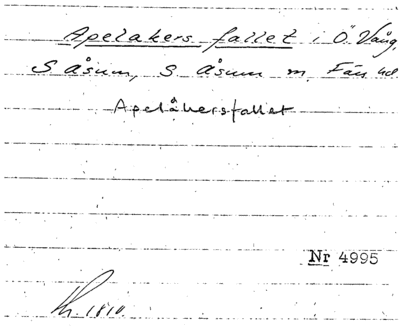 Apelakers fallet i Ö. Vång,
S Åsum, S Åsum m Färs hd
Apelåkersfallet
Nr 4995
1810